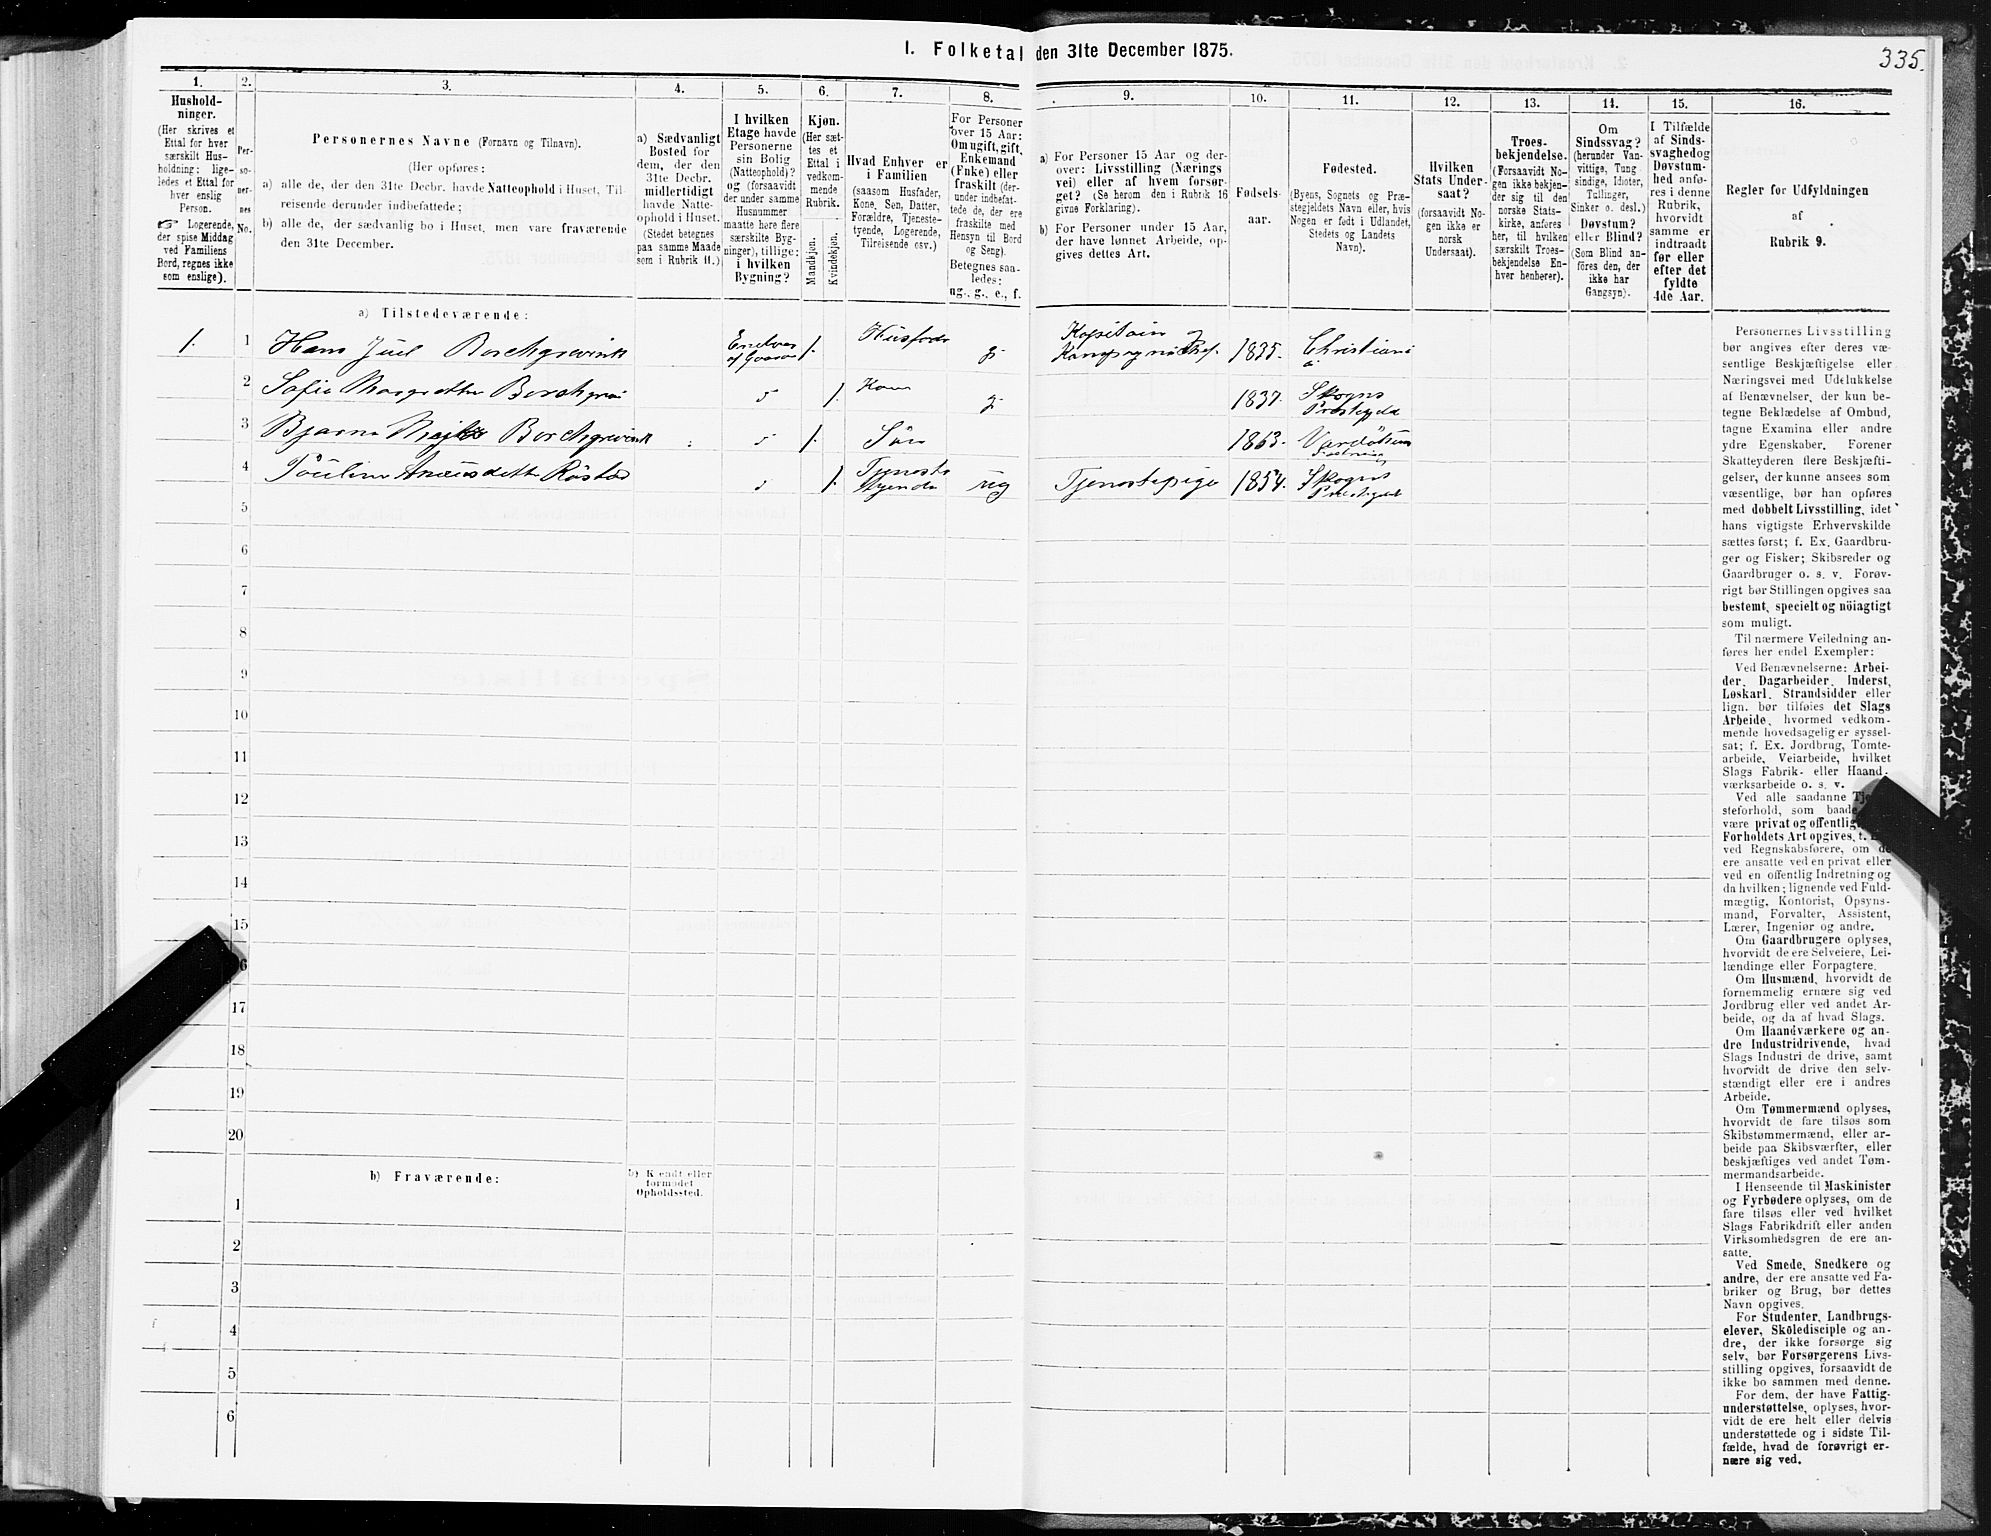 I. Folketal den 31te December 1875.
335.
1.
2.
3.
4.
5.
6.
7.
8.
9.
10.
11.
12.
13.
14.
15.
16.
Hushold-
ninger.
(Her skrives et
Ettal for hver
særskilt Hus-
holdning; lige-
ledes et Ettal for
hver enslig
Person.
☞ Logerende,
der spise Middag
ved Familiens
Bord, regnes ikke
som enslige).
Per-
so-
ner-
nes
No.
Personernes Navne (Fornavn og Tilnavn).
(Her opføres:
a) alle de, der den 31te Decbr. havde Natteophold i Huset, Til-
reisende derunder indbefattede;
b) alle de, der sædvanlig bo i Huset, men vare fraværende
den 31te December.
a) Sædvanligt
Bosted for
dem, der den
31te Decbr.
midlertidigt
havde Natte-
ophold i Huset.
(Stedet betegnes
paa samme Maade
som i Rubrik 11.)
I hvilken
Etage havde
Personerne
sin Bolig
(Natteophold)?
og (forsaavidt
der under samme
Husnummer
maatte høre flere
særskilte Byg-
ninger), tillige:
i hvilken
Bygning?
Kjøn.
(Her sæt-
tes et
Ettal i
vedkom-
mende
Rubrik.
Mandkjøn.
Kvindekjøn.
Hvad Enhver er
i Familien
(saasom Husfader,
Kone, Søn, Datter,
Forældre, Tjeneste-
tyende, Logerende,
Tilreisende osv.)
For Personer
over 15 Aar:
Om ugift, gift,
Enkemand
(Enke) eller
fraskilt (der-
under indbefat-
tede de, der ere
fraskilte med
Hensyn til Bord
og Seng).
Betegnes saa-
ledes:
ug., g., e., f.
a) For Personer 15 Aar og der-
over: Livsstilling (Nærings-
vei) eller af hvem forsør-
get? (Se herom den i Rubrik 16
givne Forklaring).
b) For Personer under 15 Aar,
der have lønnet Arbeide, op-
gives dettes Art.
Fødsels-
aar.
Fødested.
(Byens, Sognets og Præ-
stegjeldets Navn eller, hvis
Nogen er født i Udlandet,
Stedets og Landets
Navn).
Hvilken
Stats Under-
saat?
(forsaavidt No-
gen ikke er
norsk
Undersaat).
Troes-
bekjendelse.
(Forsaavidt No-
gen ikke bekjen-
der sig til den
norske Stats-
kirke, anføres
her, til hvilken
særskilt Troes-
bekjendelse En-
hver henhører).
Om
Sindssvag?
(herunder Van-
vittige, Tung-
sindige, Idioter,
Tullinger,
Sinker o. desl.)
Døvstum?
eller Blind?
(Som Blind an-
føres den, der
ikke har
Gangsyn).
I Tilfælde
af Sinds-
svaghed og
Døvstum-
hed anfø-
res i denne
Rubrik,
hvorvidt
samme er
indtraadt
før eller
efter det
fyldte
4de Aar.
Regler for Udfyldningen
af
Rubrik 9.
a) Tilstedeværende:
1. 1 Hans Juel Borchgrevink 1. g. Kapitain og 1835. Christiania
2 Borchgrevi 5 1. Kone g. 1837. Skogns
3 Bjarne Borchgrevink 5 1. Søn 1863.
4 1. ug Tjenestepige 1854. Skogns
5
6
7
8
9
10
11
12
13
14
15
6
17
18
19
20
b) Fraværende:
b) K endt eller
formodet
Opholdssted.
1
2
3
4
5
6
Personernes Livsstilling
bør angives efter deres væ-
sentlige Beskjæftigelse eller
Næringsvei med Udelukkelse
af Benævnelser, der kun be-
tegne Beklædelse af Ombud,
tagne Examina eller andre
ydre Egenskaber. Forener
Skatteyderen flere Beskjæfti-
gelser, der kunne ansees som
væsentlige, bør han opføres
med dobbelt Livsstilling, idet
hans vigtigste Erhvervskilde
sættes først; f. Ex. Gaardbru-
ger og Fisker; Skibsreder og
Gaardbruger o. s. v. Forøv-
rigt bør Stillingen opgives saa
bestemt, specielt og nöiagtigt
som muligt.
Til nærmere Veiledning an-
føres her endel Exempler:
Ved Benævnelserne: Arbei-
der, Dagarbeider, Inderst,
Løskarl, Strandsidder eller
lign. bør tilføies det Slags
Arbeide, hvormed vedkom-
mende hovedsagelig er syssel-
sat; f. Ex. Jordbrug, Tomte-
arbeide, Veiarbeide, hvilket
Slags Fabrik- eller Haand-
værksarbeide o. s. v.
Ved alle saadanne
steforhold, som baade
være privat og offentlig
Forholdets Art opgives,
ved Regnskabsførere, om de
ere ansatte ved en privat eller
ved en offentlig Indretning og
da hvilken; lignende ved Fuld-
mægtig, Kontorist, Opsyns-
mand, Forvalter, Assistent,
Lærer, Ingeniør og andre.
Om Gaardbrugere oplyses,
hvorvidt de ere Selveiere, Lei-
lændinge eller Forpagtere.
Om Husmænd, hvorvidt de
fornemmelig ernære sig ved
Jordbrug eller ved andet Ar-
beide, og da af hvad Slags.
Om Haandværkere og an-
dre Industridrivende, hvad
Slags Industri de drive, samt
hvorvidt de drive den selv-
stændigt eller ere i andres
Arbeide.
Om Tømmermænd oplyses,
hvorvidt de fare tilsøs som
Skibstømmermænd, eller ar-
beide paa Skibsværfter, eller
beskjæftiges ved andet Tøm-
mermandsarbeide.
I Henseende til Maskinister
og Fyrbødere oplyses, om de
fare tilsøs eller ved hvilket
Slags Fabrikdrift eller anden
Virksomhedsgren de ere an-
satte.
Ved Smede, Snedkere og
andre, der ere ansatte ved Fa-
briker og Brug, bør dettes
Navn opgives.
For Studenter, Landbrugs-
elever, Skoledisciple og an-
dre, der ikke forsørge sig
selv, bør Forsørgerens Livs-
stilling opgives, forsaavidt de
ikke bo sammen med denne.
For dem, der have Fattig-
understøttelse, oplyses, hvor-
vidt de ere helt eller delvis
understøttede og i sidste Til-
fælde, hvad de forøvrigt er-
nære sig ved.